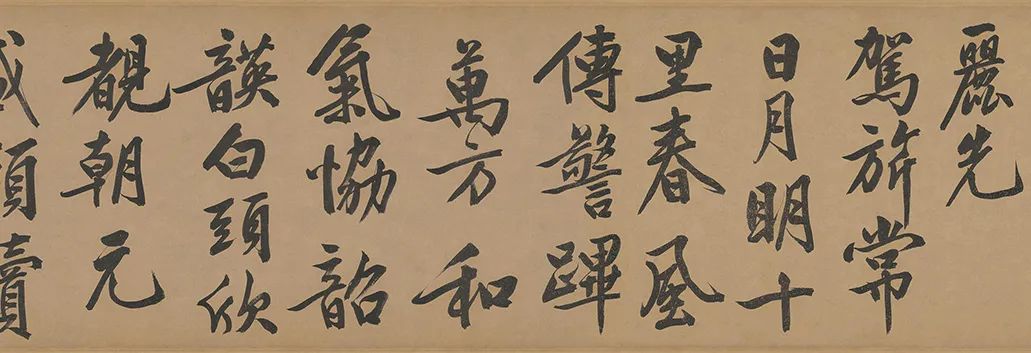 麗先
駕旂常
日月明十
里春風
傳警蹕
萬方和
氣協韶
韺白頭欣
覩朝元